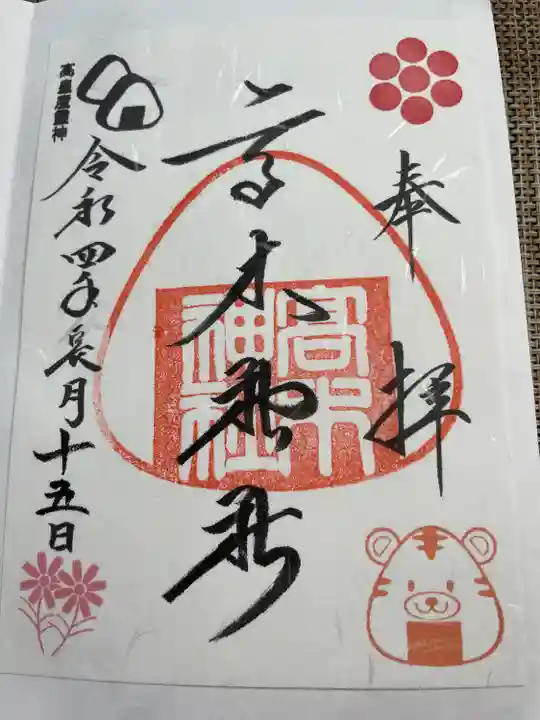 奉拝
高木神社
高木神社
令和四年長月十五日
高皇産靈神